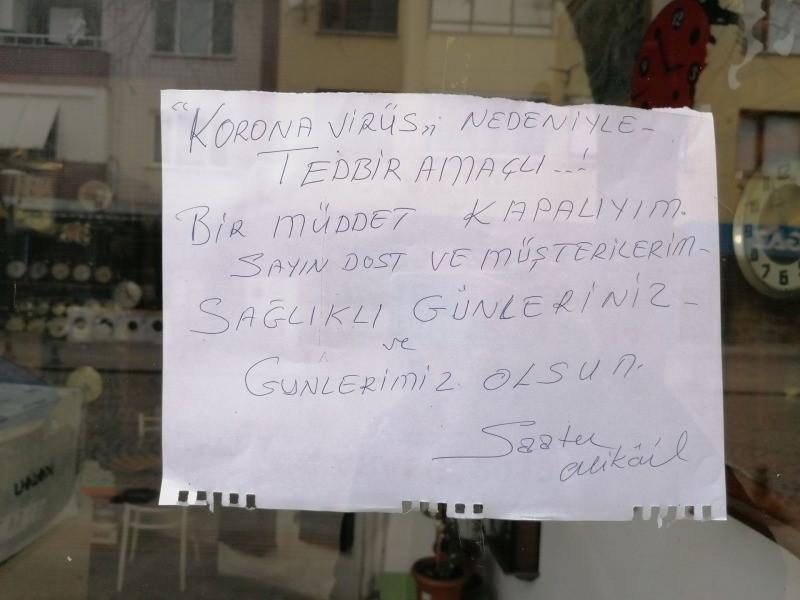 "KORONA VİRÜS" NEDENİYLE-
TEDBİR AMAÇLI...!
BİR MÜDDET KAPALIYIM.
SAYIN DOST VE MÜŞTERİLERİM-
SAĞLIKLI GÜNLERİNİZ-
ve
GÜNLERİMİZ OLSUN.
Saatçi